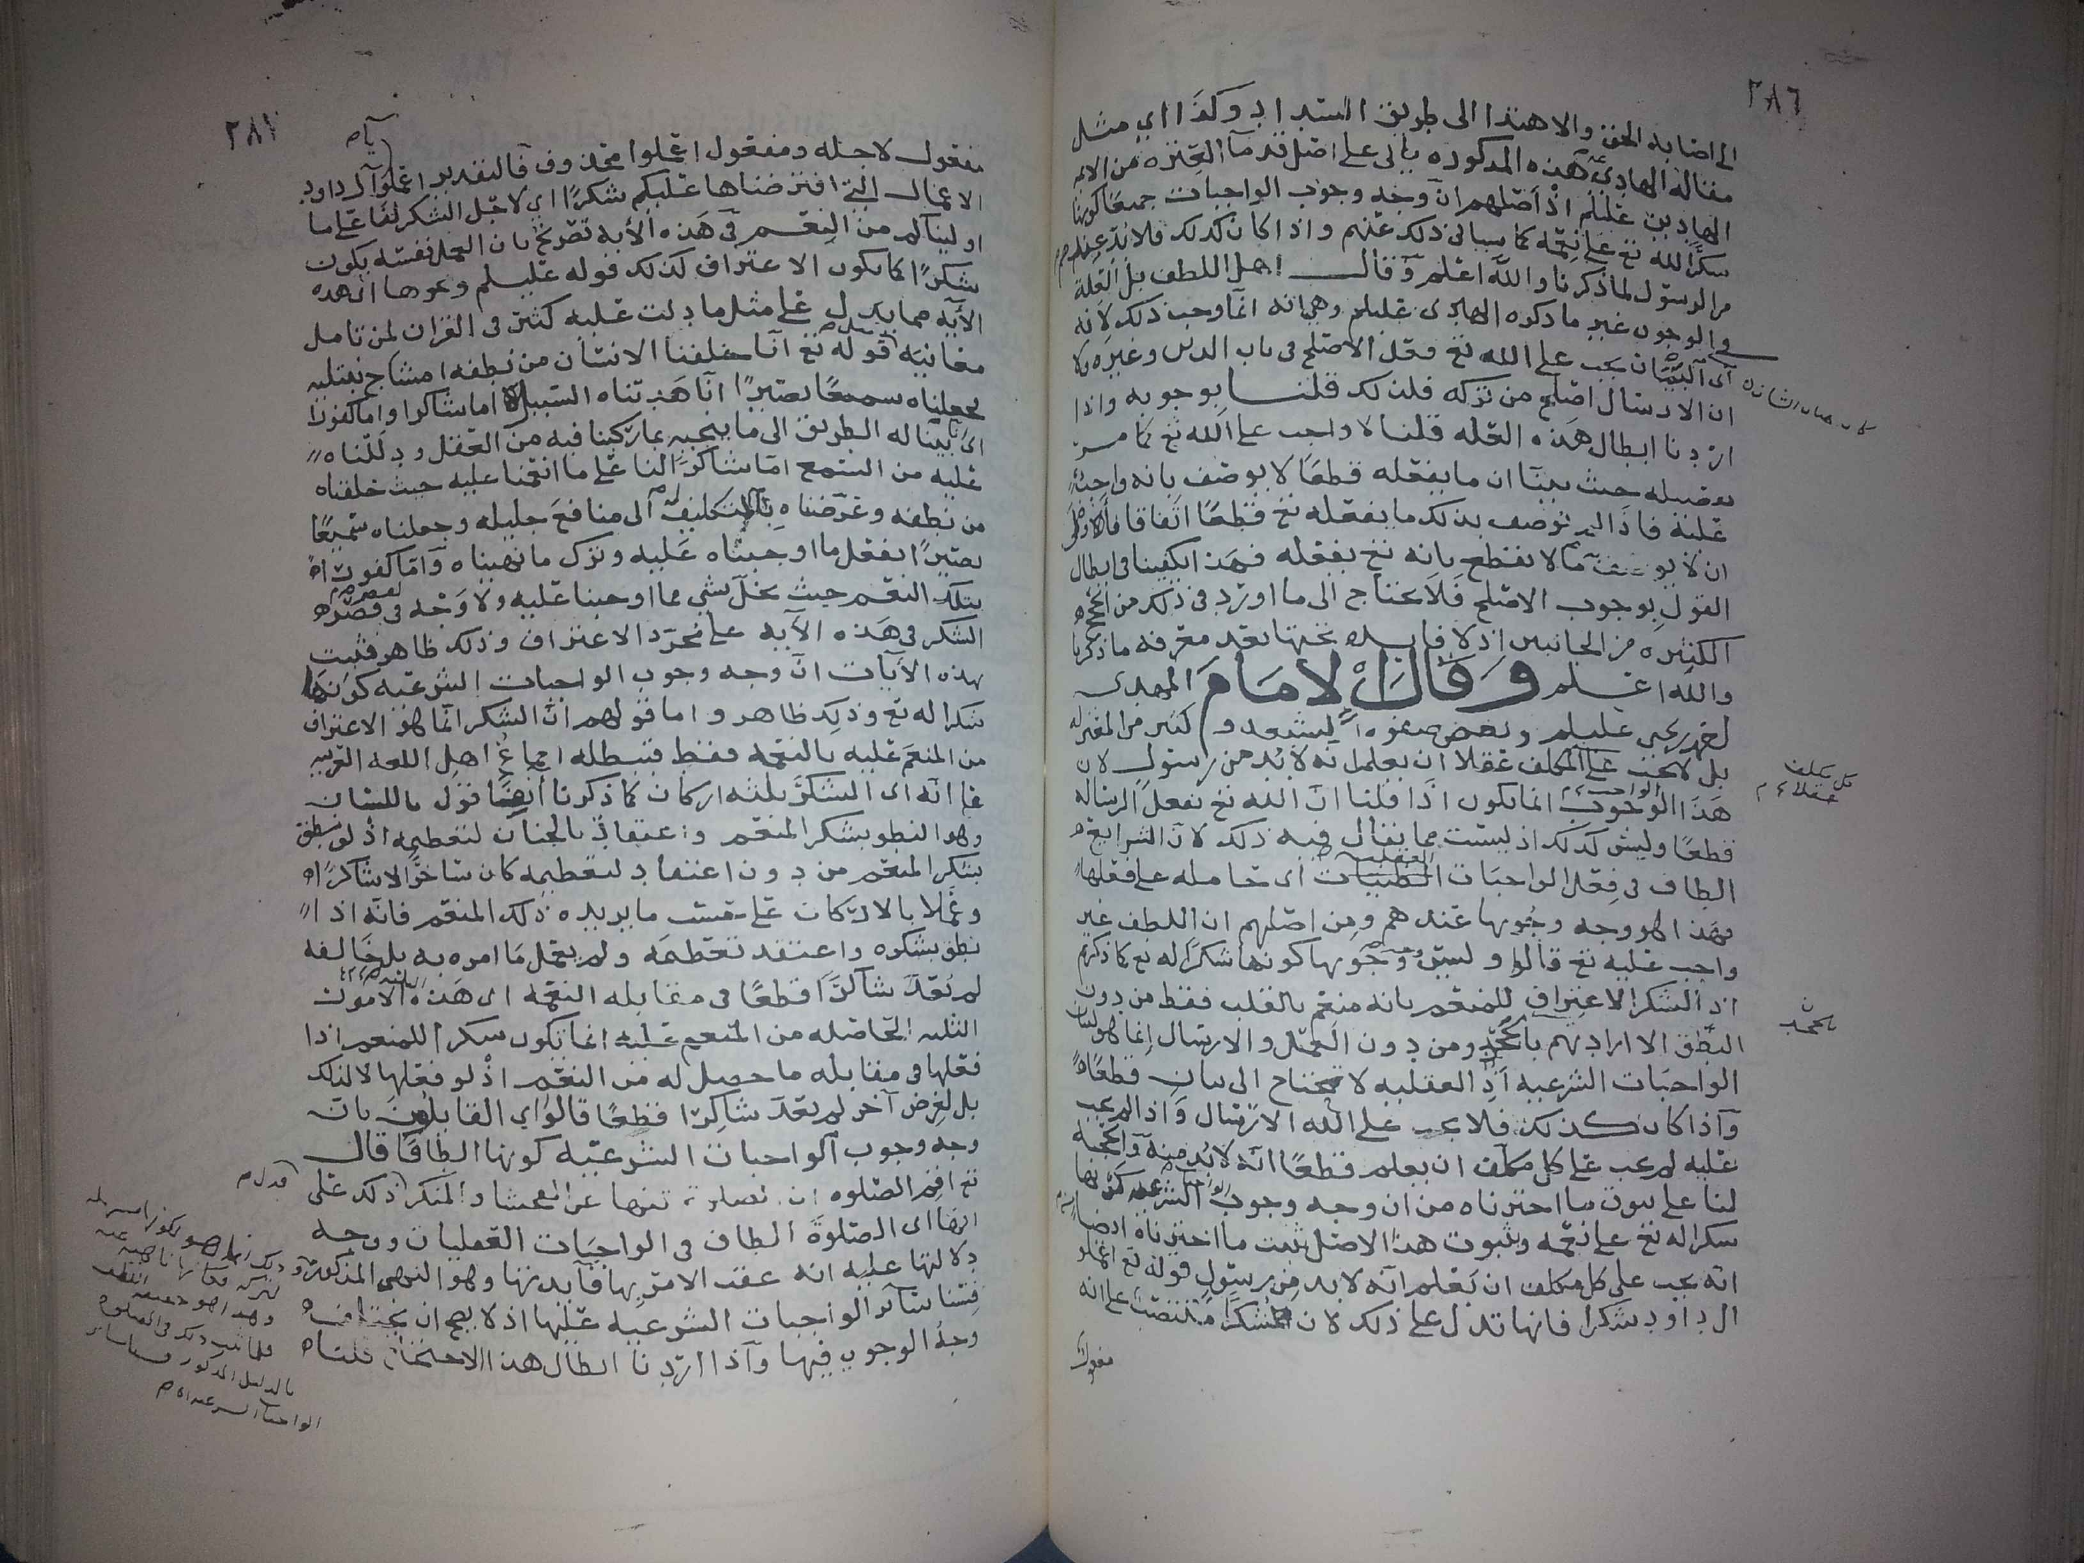 ٢٨٦
الى اصابة الحق والاهتدا الى طريق السداد وكذا اي مثل
مقالة الهادي هذه المذكوره يأتى على اصل قدمآ العتره من الائمه
الهادين عليلم اذ اصلهم ان وجه وجوب الواجبات جميعا كونها
شكرًا لله تع على نعمه كما سياتى ذلك عنهم واذا كان كذلك فلا بد عندهم
من الرسول لما ذكرنا والله اعلم وقال اهل اللطف بل العلة
في الوجوب غير ما ذكره الهادى عليلم وهي انه انما وجب ذلك لانه
اى البيان يجب على الله تع فعل الاصلح فى باب الدين وغيره ولا
ان الارسال اصلح من تركه فلذلك قلنا بوجوبه واذا
اردنا ابطال هذه العله قلنا لا واجب على الله تع كما مر
تفصيله حيث بينا ان ما يفعله قطعًا لا يوصف بانه واجب
عليه فاذا لم يوصف بذلك ما يفعله تع قطعًا اتفاقا فالاولى
ان لا يوصف ما لا نقطع بانه تع يفعله فهذا يكفينا فى ابطال
القول بوجوب الاصلح فلا نحتاج الى ما اورد فى ذلك من الحجج
الكثيره من الجانبين اذ لا فايده تحتها بعد معرفه ما ذكرنا
والله اعلم وقال الامام المهدى
احمد بن يحيى عليلم وبعض صفوة الشيعه وكثير من المعتزله
بل لا يجب على المكلف عقلا ان يعلم انه لا بد من رسول لان
هذا الوجوب انما يكون اذا قلنا ان الله تع يفعل الرساله
قطعًا وليس كذلك اذ ليست مما يقال فيه ذلك لان الشرايع
الطاف فى فعل الواجبات العقليات اى حامله على فعلها
فهذا هو وجه وجوبها عندهم ومن اصلهم ان اللطف غير
واجب عليه تع قالوا وليس وجه وجوبها كونها شكرًا له تع كما ذكرتم
اذ الشكر الاعتراف للمنعم بانه منعم بالقلب فقط من دون
النطق الا ارادتهم بالحمد ومن دون العمل والارسال انما هو لبيان
الواجبات الشرعيه اذ العقليه لا تحتاج الى بيان قطعًا
واذا كان كذلك فلا يجب على الله الارسال واذا لم يجب
عليه لم يجب على كل مكلف ان يعلم قطعًا انه لا بد منه والحجه
لنا على ثبوت ما اخترناه من ان وجه وجوب الواجبات الشرعيه كونها
شكرا له تع على نعمه وبثبوت هذا الاصل يثبت ما اخترناه ايضا من
انه يجب على كل مكلف ان يعلم انه لا بد من رسول قوله تع اعملوا
ال داود شكرا فانها تدل على ذلك لان شكرًا منتصب على انه
مفعول
كل مكلف
عقلا
بالحمد
٢٨٧
مفعول لاجله ومفعول اعملوا محذوف فالتقدير اعملوا آل داود
يآه
الاعمال التى افترضناها عليكم شكرًا اي لاجل الشكر لنا على ما
اولينآكم من النعم فى هذه الآية تصريح بان العمل نفسه يكون
شكرًا كما يكون الاعتراف كذلك قوله عليلم ونحوها اى هذه
الآيه مما يدل على مثل ما دلت عليه كثير فى القران لمن تامل
معانيه قوله تع انا خلقنا الانسان من نطفه امشاج نبتليه
فجعلناه سميعًا بصيرًا انا هديناه السبيل اما شاكرا واما كفورا
اى بينا له الطريق الى ما ينجيه بما ركبنا فيه من العقل ودللناه
عليه من السمع اما شاكرًا لنا على ما انعمنا عليه حيث خلقناه
من نطفه وعرضناه بالتكليف الى منافع جليله وجعلناه سميعًا
بصيرًا بفعل ما اوجبناه عليه وترك ما نهيناه واما كفورا
بتلك النعم حيث يخل بشي مما اوجبنا عليه ولا وجه فى قصره
الشكر فى هذه الآيه على مجرد الاعتراف وذلك ظاهر فثبت
بهذه الآيات ان وجه وجوب الواجبات الشرعيه كونها
شكرا له تع وذلك ظاهر واما قولهم ان الشكر انما هو الاعتراف
من المنعم عليه بالنعمه فقط فيبطله اجماع اهل اللغه العربيه
على انه اى الشكر ثلثه اركان كما ذكرنا ايضًا قول باللسان
وهو النطق بشكر المنعم واعتقاد بالجنان لتعظيمه اذ لو نطق
بشكر المنعم من دون اعتقاد لتعظيمه كان ساخرًا لا شاكرًا
وعملا بالاركان على حسب ما يريده ذلك المنعم فانه اذا
نطق بشكره واعتقد تعظيمه ولم يعمل ما امره به بل خالفه
لم يعد شاكرًا قطعًا فى مقابله النعمه اى هذه الامور
الثلثه الحاصله من المنعم عليه انما تكون شكرا للمنعم اذا
فعلها فى مقابله ما حصل له من النعم اذ لو فعلها لا لذلك
بل لغرض آخر لم يعد شاكرًا قطعًا قالوا اي القايلون بان
وجه وجوب الواجبات الشرعيه كونها الطافا قال
تع اقم الصلوه ان الصلوة تنهى عن الفحشا والمنكر فدل ذلك على
انها اى الصلوة الطاف فى الواجبات العقليات ووجه
دلالتها عليه انه عقب الامر بها فآيدتها وهو النهى المذكور
فقسنا سآئر الواجبات الشرعيه عليها اذ لا يصح ان يختلف
وجه الوجوب فيها واذا اردنا ابطال هذا الاحتجاج قلنا
وهذا هو حقيقه اللطف
فلما ثبت ذلك فى الصلوه
بالدليل المذكور قسنا سائر
الواجبات الشرعيه